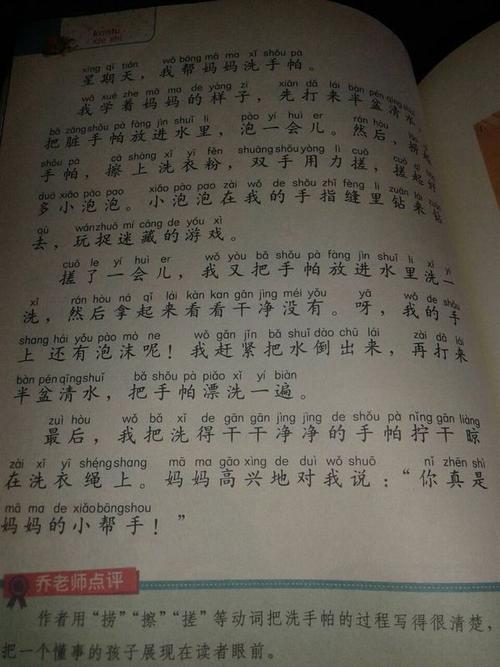 xīng qī tiān wǒ bāng mā ma xǐ shǒu pà
星期天，我帮妈妈洗手帕。
wǒ xué zhe mā ma de yàng zi xiān dǎ lái bàn pén qīng shuǐ
我学着妈妈的样子，先打来半盆清水，
bǎ zāng shǒu pà fàng jìn shuǐ lǐ pào yí huì er rán hòu
把脏手帕放进水里，泡一会儿。然后，捞起
shǒu pà cā shàng xǐ yī fěn shuāng shǒu yòng lì cuō cuō
手帕，擦上洗衣粉，双手用力搓，搓起好
duō xiǎo pào pao xiǎo pào pao zài wǒ de shǒu zhǐ fèng lǐ zuān lái zuān
多小泡泡。小泡泡在我的手指缝里钻来钻
qù wán zhuō mí cáng de yóu xì
去，玩捉迷藏的游戏。
cuō le yí huì er wǒ yòu bǎ shǒu pà fàng jìn shuǐ lǐ xǐ yi
搓了一会儿，我又把手帕放进水里洗一
xǐ rán hòu ná qǐ lái kàn kan gān jìng méi yǒu yā wǒ de shǒu
洗，然后拿起来看看干净没有。呀，我的手
shang hái yǒu pào mò ne wǒ gǎn jǐn bǎ shuǐ dào chū lái zài dǎ lái
上还有泡沫呢！我赶紧把水倒出来，再打来
bàn pén qīng shuǐ bǎ shǒu pà piǎo xǐ yí biàn
半盆清水，把手帕漂洗一遍。
zuì hòu wǒ bǎ xǐ de gān gān jìng jìng de shǒu pà nǐng gān liàng
最后，我把洗得干干净净的手帕拧干晾
zài xǐ yī shéng shang mā ma gāo xìng de duì wǒ shuō nǐ zhēn shì
在洗衣绳上。妈妈高兴地对我说：“你真是
mā ma de xiǎo bāng shou
妈妈的小帮手！”
乔老师点评
作者用“捞”“擦”“搓”等动词把洗手帕的过程写得很清楚，
把一个懂事的孩子展现在读者眼前。